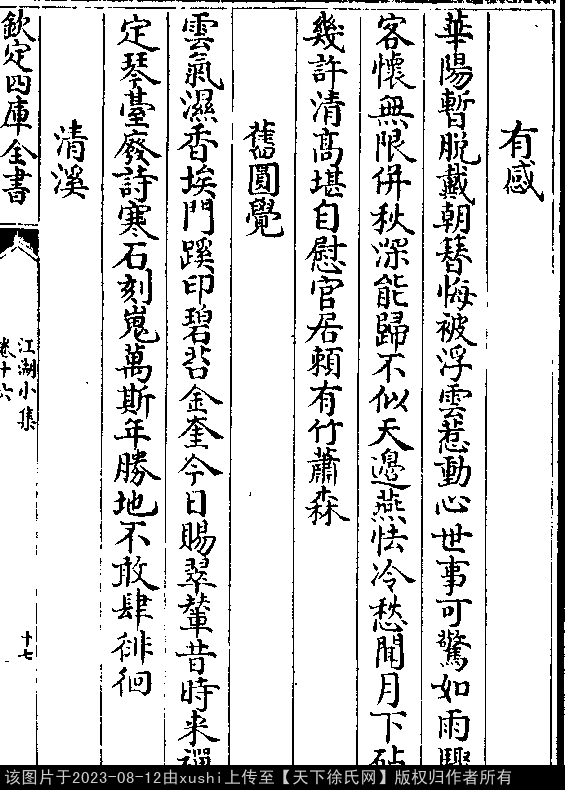 有感
華陽暫脫戴朝簪悔被浮雲惹動心世事可驚如雨驟
客懷無限併秋深能歸不似天邊燕怯冷愁聞月下砧
幾許清髙堪自慰官居頼有竹蕭森
舊圓覺
雲氣濕香埃門蹊印碧苔金奎今日賜翠輦昔時来禪
定琴臺廢詩寒石刻嵬萬斯年勝地不敢肆徘徊
清溪
欽定四庫全書
江湖小集
卷十六
十七
该图片于2023-08-12由xushi上传至【天下徐氏网】版权归作者所有